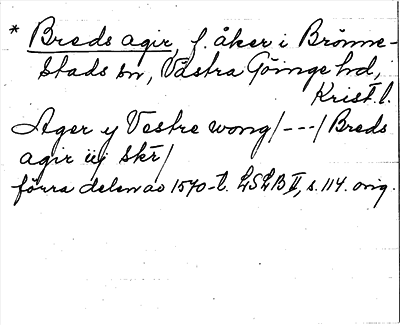 * Breds agir, f. åker i Brönne-
stads sn, Västra Göinge hd,
Krist. l.
Ager y Vestre wong/---/Breds
agir iij Skr/
förra delen av 1570-t. LSLB II, s. 114. orig.